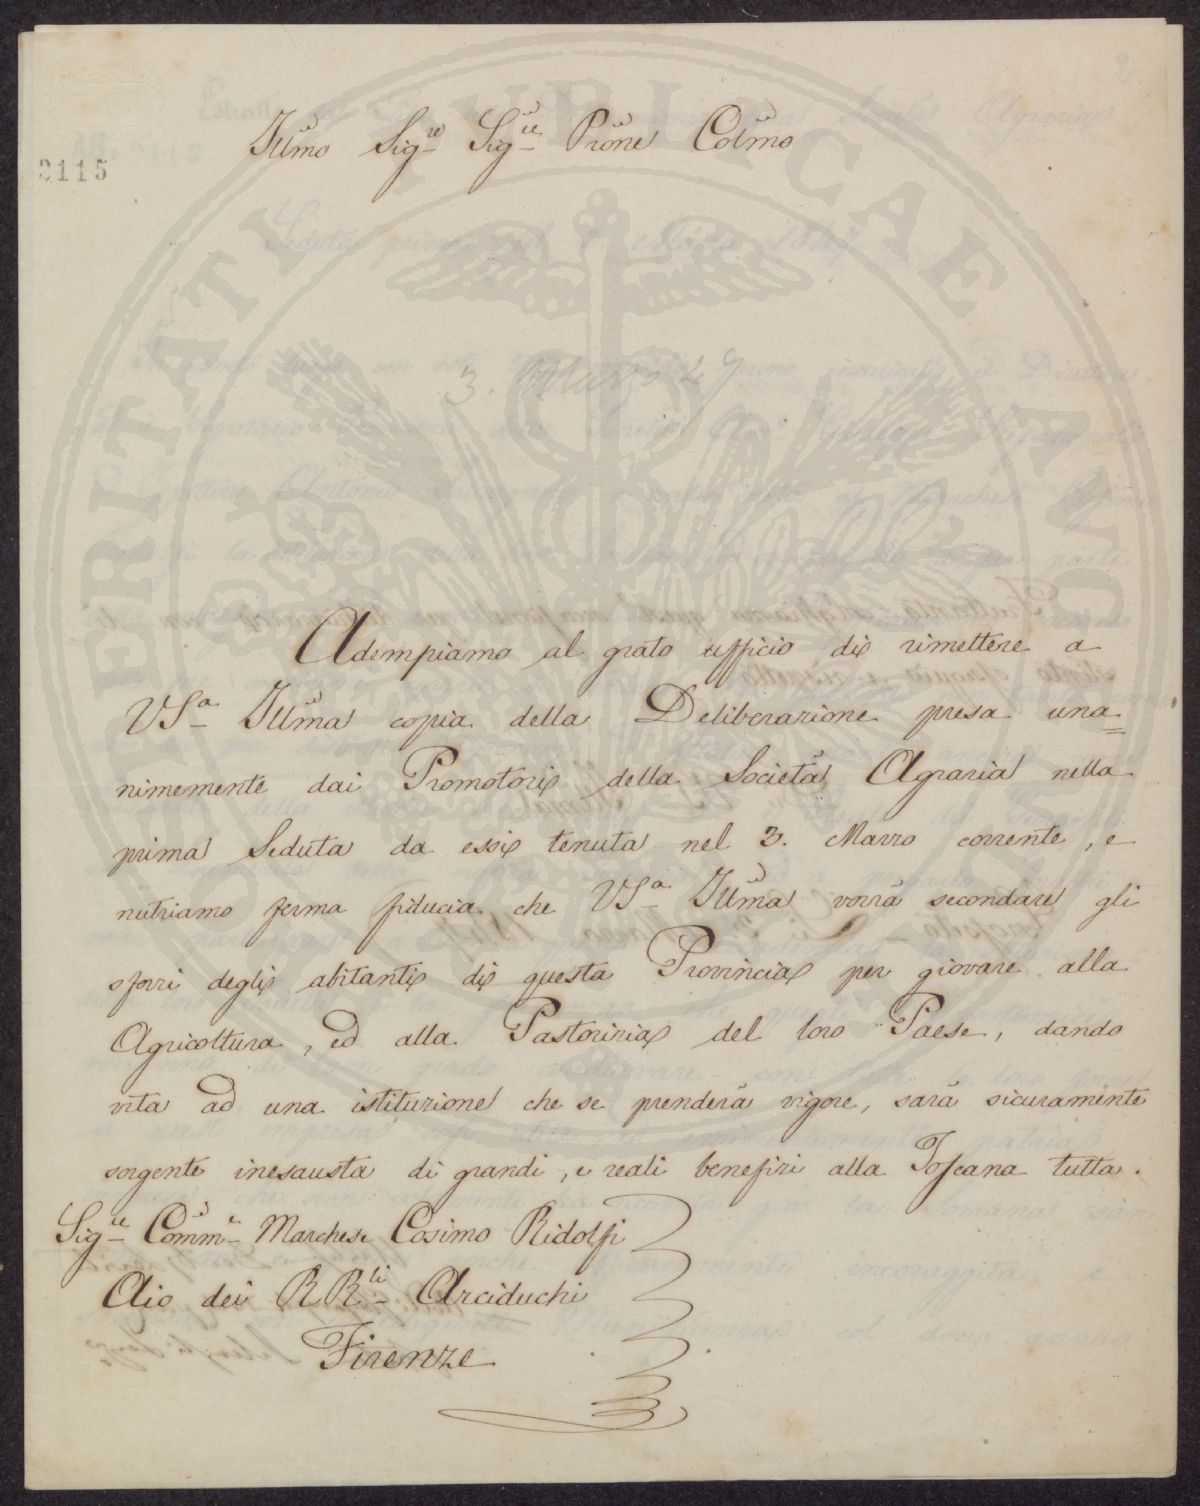 Illmo Sigre Sigre Prone Colmo
2115
3. Marzo 47
Adempiamo al grato ufficio di rimettere a
VSa Illma copia della Deliberazione presa una=
nimemente dai Promotori della Società Agraria nella
prima Seduta da essi tenuta nel 3. Marzo corrente, e
nutriamo ferma fiducia che VSa Illma vorrà secondare gli
sforzi degli abitanti di questa Provincia per giovare alla
Agricoltura, ed alla Pastorizia del loro Paese, dando
vita ad una istituzione che se prenderà vigore, sarà sicuramente
sorgente inesausta di grandi, e reali benefizi alla Toscana tutta.
Sigre Comme Marchese Cosimo Ridolfi
Aio dei R Rli Arciduchi
Firenze